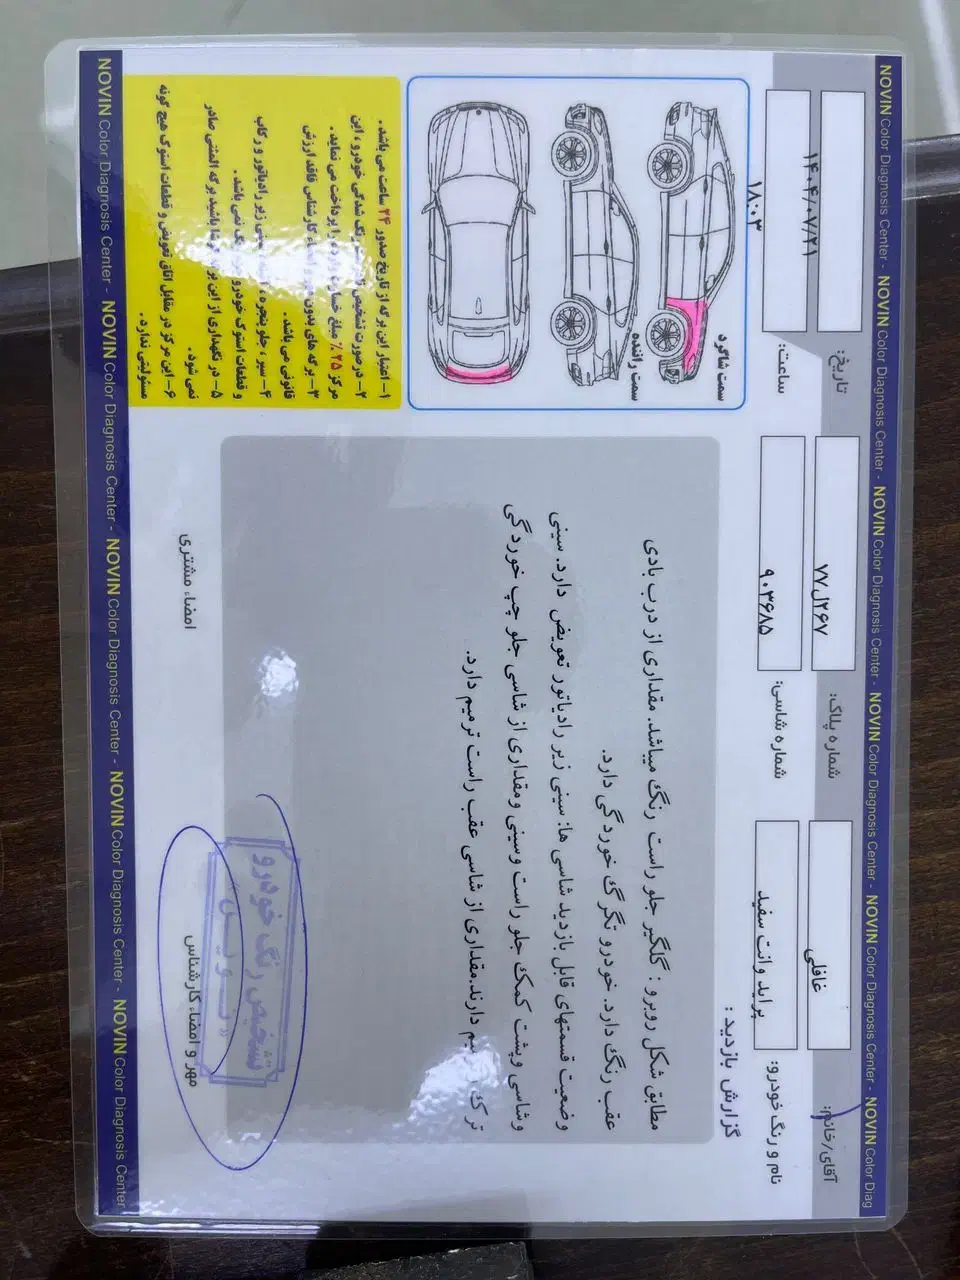 NOVIN Color Diagnosis Center - NOVIN Color Diagnosis Center - NOVIN Color Diagnosis Center - NOVIN Color Diagnosis Center - NOVIN Color Diagnosis Center - NOVIN Color Diag
آقای/خانم: غافلی
شماره پلاک: ۷۷ل۲۶۷
تاریخ: ۱۴۰۴/۰۷/۲۱
نام و رنگ خودرو: پراید وانت سفید
شماره شاسی: ۹۰۳۶۸۵
ساعت: ۱۸:۰۳
گزارش بازدید :
مطابق شکل روبرو : گلگیر جلو راست رنگ میباشد. مقداری از درب بادی
عقب رنگ دارد. خودرو تگرگ خوردگی دارد.
وضعیت قسمتهای قابل بازدید شاسی ها: سینی زیر رادیاتور تعویض دارد. سینی
وشاسی وپشت کمک جلو راست وسینی ومقداری از شاسی جلو چپ خوردگی
ترک دارند.مقداری از شاسی عقب راست ترمیم دارد.
سمت شاگرد
سمت راننده
۱- اعتبار این برگه از تاریخ صدور ۲۴ ساعت می باشد .
۲- در صورت تشخیص رنگ شدگی خودرو ، این
مرکز ۲۵٪ مبلغ را پرداخت می نماید .
۳- برگه های بدون مهر و کارشناس فاقد ارزش
قانونی می باشد .
۴- سپر ، جلو پنجره زیر رادیاتور و رکاب
و قطعات استوک خودرو نمی باشد .
۵- در نگهداری از این برگه باشید برگه المثنی صادر
نمی شود .
۶- این مرکز در مقابل اتاق تعویض و قطعات استوک هیچ گونه
مسئولیتی ندارد .
امضاء مشتری
مهر و امضاء کارشناس
تشخیص رنگ خودرو
نوین
NOVIN Color Diagnosis Center - NOVIN Color Diagnosis Center - NOVIN Color Diagnosis Center - NOVIN Color Diagnosis Center - NOVIN Color Diagnosis Center